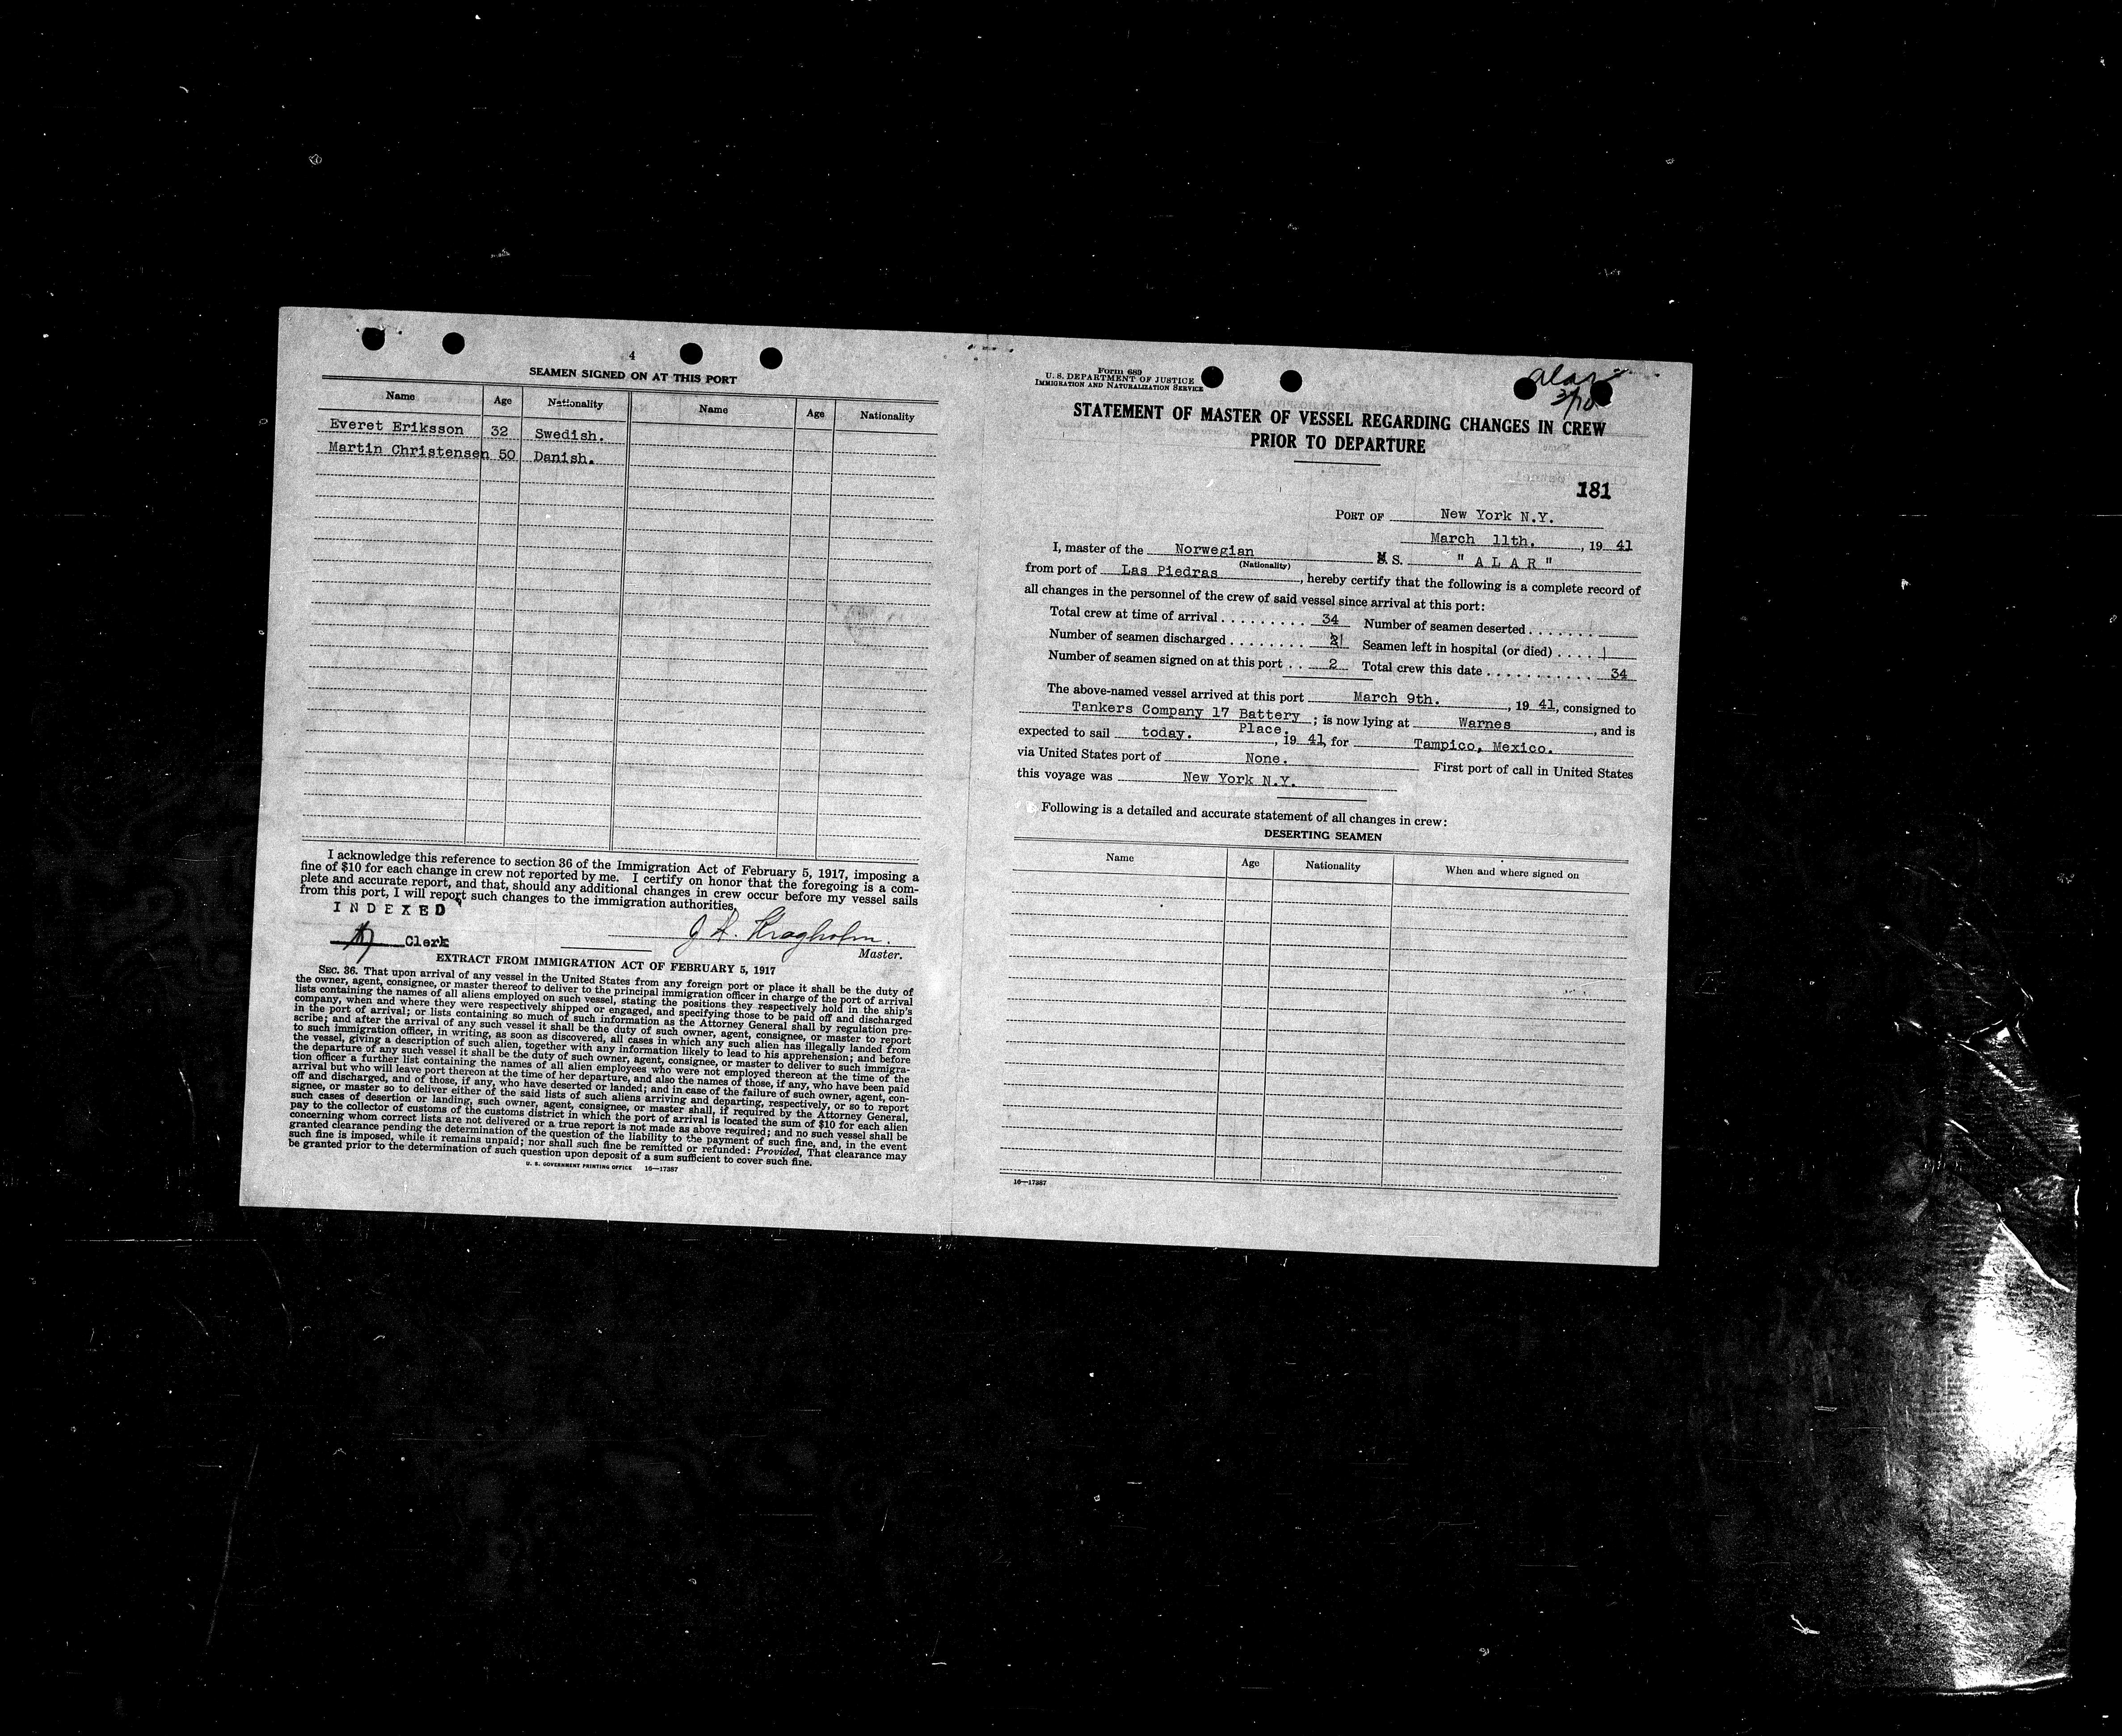 4
SEAMEN SIGNED ON AT THIS PORT
Name Age Nationality Name Age Nationality
Everet Eriksson 32 Swedish.
Martin Christensen 50 Danish.
I acknowledge this reference to section 36 of the Immigration Act of February 5, 1917, imposing a
fine of $10 for each change in crew not reported by me. I certify on honor that the foregoing is a com-
plete and accurate report, and that, should any additional changes in crew occur before my vessel sails
from this port, I will report such changes to the immigration authorities.
INDEXED
Clerk
J. Kragholm.
Master.
EXTRACT FROM IMMIGRATION ACT OF FEBRUARY 5, 1917
SEC. 36. That upon arrival of any vessel in the United States from any foreign port or place it shall be the duty of
the owner, agent, consignee, or master thereof to deliver to the principal immigration officer in charge of the port of arrival
lists containing the names of all aliens employed on such vessel, stating the positions they respectively hold in the ship's
company, when and where they were respectively shipped or engaged, and specifying those to be paid off and discharged
in the port of arrival; or lists containing so much of such information as the Attorney General shall by regulation pre-
scribe; and after the arrival of any such vessel it shall be the duty of such owner, agent, consignee, or master to report
to such immigration officer, in writing, as soon as discovered, all cases in which any such alien has illegally landed from
the vessel, giving a description of such alien, together with any information likely to lead to his apprehension; and before
the departure of any such vessel it shall be the duty of such owner, agent, consignee, or master to deliver to such immigra-
tion officer a further list containing the names of all alien employees who were not employed thereon at the time of the
arrival but who will leave port thereon at the time of her departure, and also the names of those, if any, who have been paid
off and discharged, and of those, if any, who have deserted or landed; and in case of the failure of such owner, agent, con-
signee, or master so to deliver either of the said lists of such aliens arriving and departing, respectively, or so to report
such cases of desertion or landing, such owner, agent, consignee, or master shall, if required by the Attorney General,
pay to the collector of customs of the customs district in which the port of arrival is located the sum of $10 for each alien
concerning whom correct lists are not delivered or a true report is not made as above required; and no such vessel shall be
granted clearance pending the determination of the question of the liability to the payment of such fine, and, in the event
such fine is imposed, while it remains unpaid; nor shall such fine be remitted or refunded: Provided, That clearance may
be granted prior to the determination of such question upon deposit of a sum sufficient to cover such fine.
U. S. GOVERNMENT PRINTING OFFICE 16—17387
Form 689
U. S. DEPARTMENT OF JUSTICE
IMMIGRATION AND NATURALIZATION SERVICE
Alar
3/10
STATEMENT OF MASTER OF VESSEL REGARDING CHANGES IN CREW
PRIOR TO DEPARTURE
181
PORT OF New York N.Y.
March 11th., 19 41
I, master of the Norwegian M S. " A L A R "
(Nationality)
from port of Las Piedras, hereby certify that the following is a complete record of
all changes in the personnel of the crew of said vessel since arrival at this port:
Total crew at time of arrival . . . . . . . . . 34 Number of seamen deserted . . . . . . .
Number of seamen discharged . . . . . . . . 1 Seamen left in hospital (or died) . . . . 1
Number of seamen signed on at this port . . 2 Total crew this date . . . . . . . . . . . 34
The above-named vessel arrived at this port March 9th., 19 41, consigned to
Tankers Company 17 Battery Place.; is now lying at Warnes, and is
expected to sail today., 19 41, for Tampico, Mexico.
via United States port of None. First port of call in United States
this voyage was New York N.Y.
Following is a detailed and accurate statement of all changes in crew:
DESERTING SEAMEN
Name Age Nationality When and where signed on
16—17387